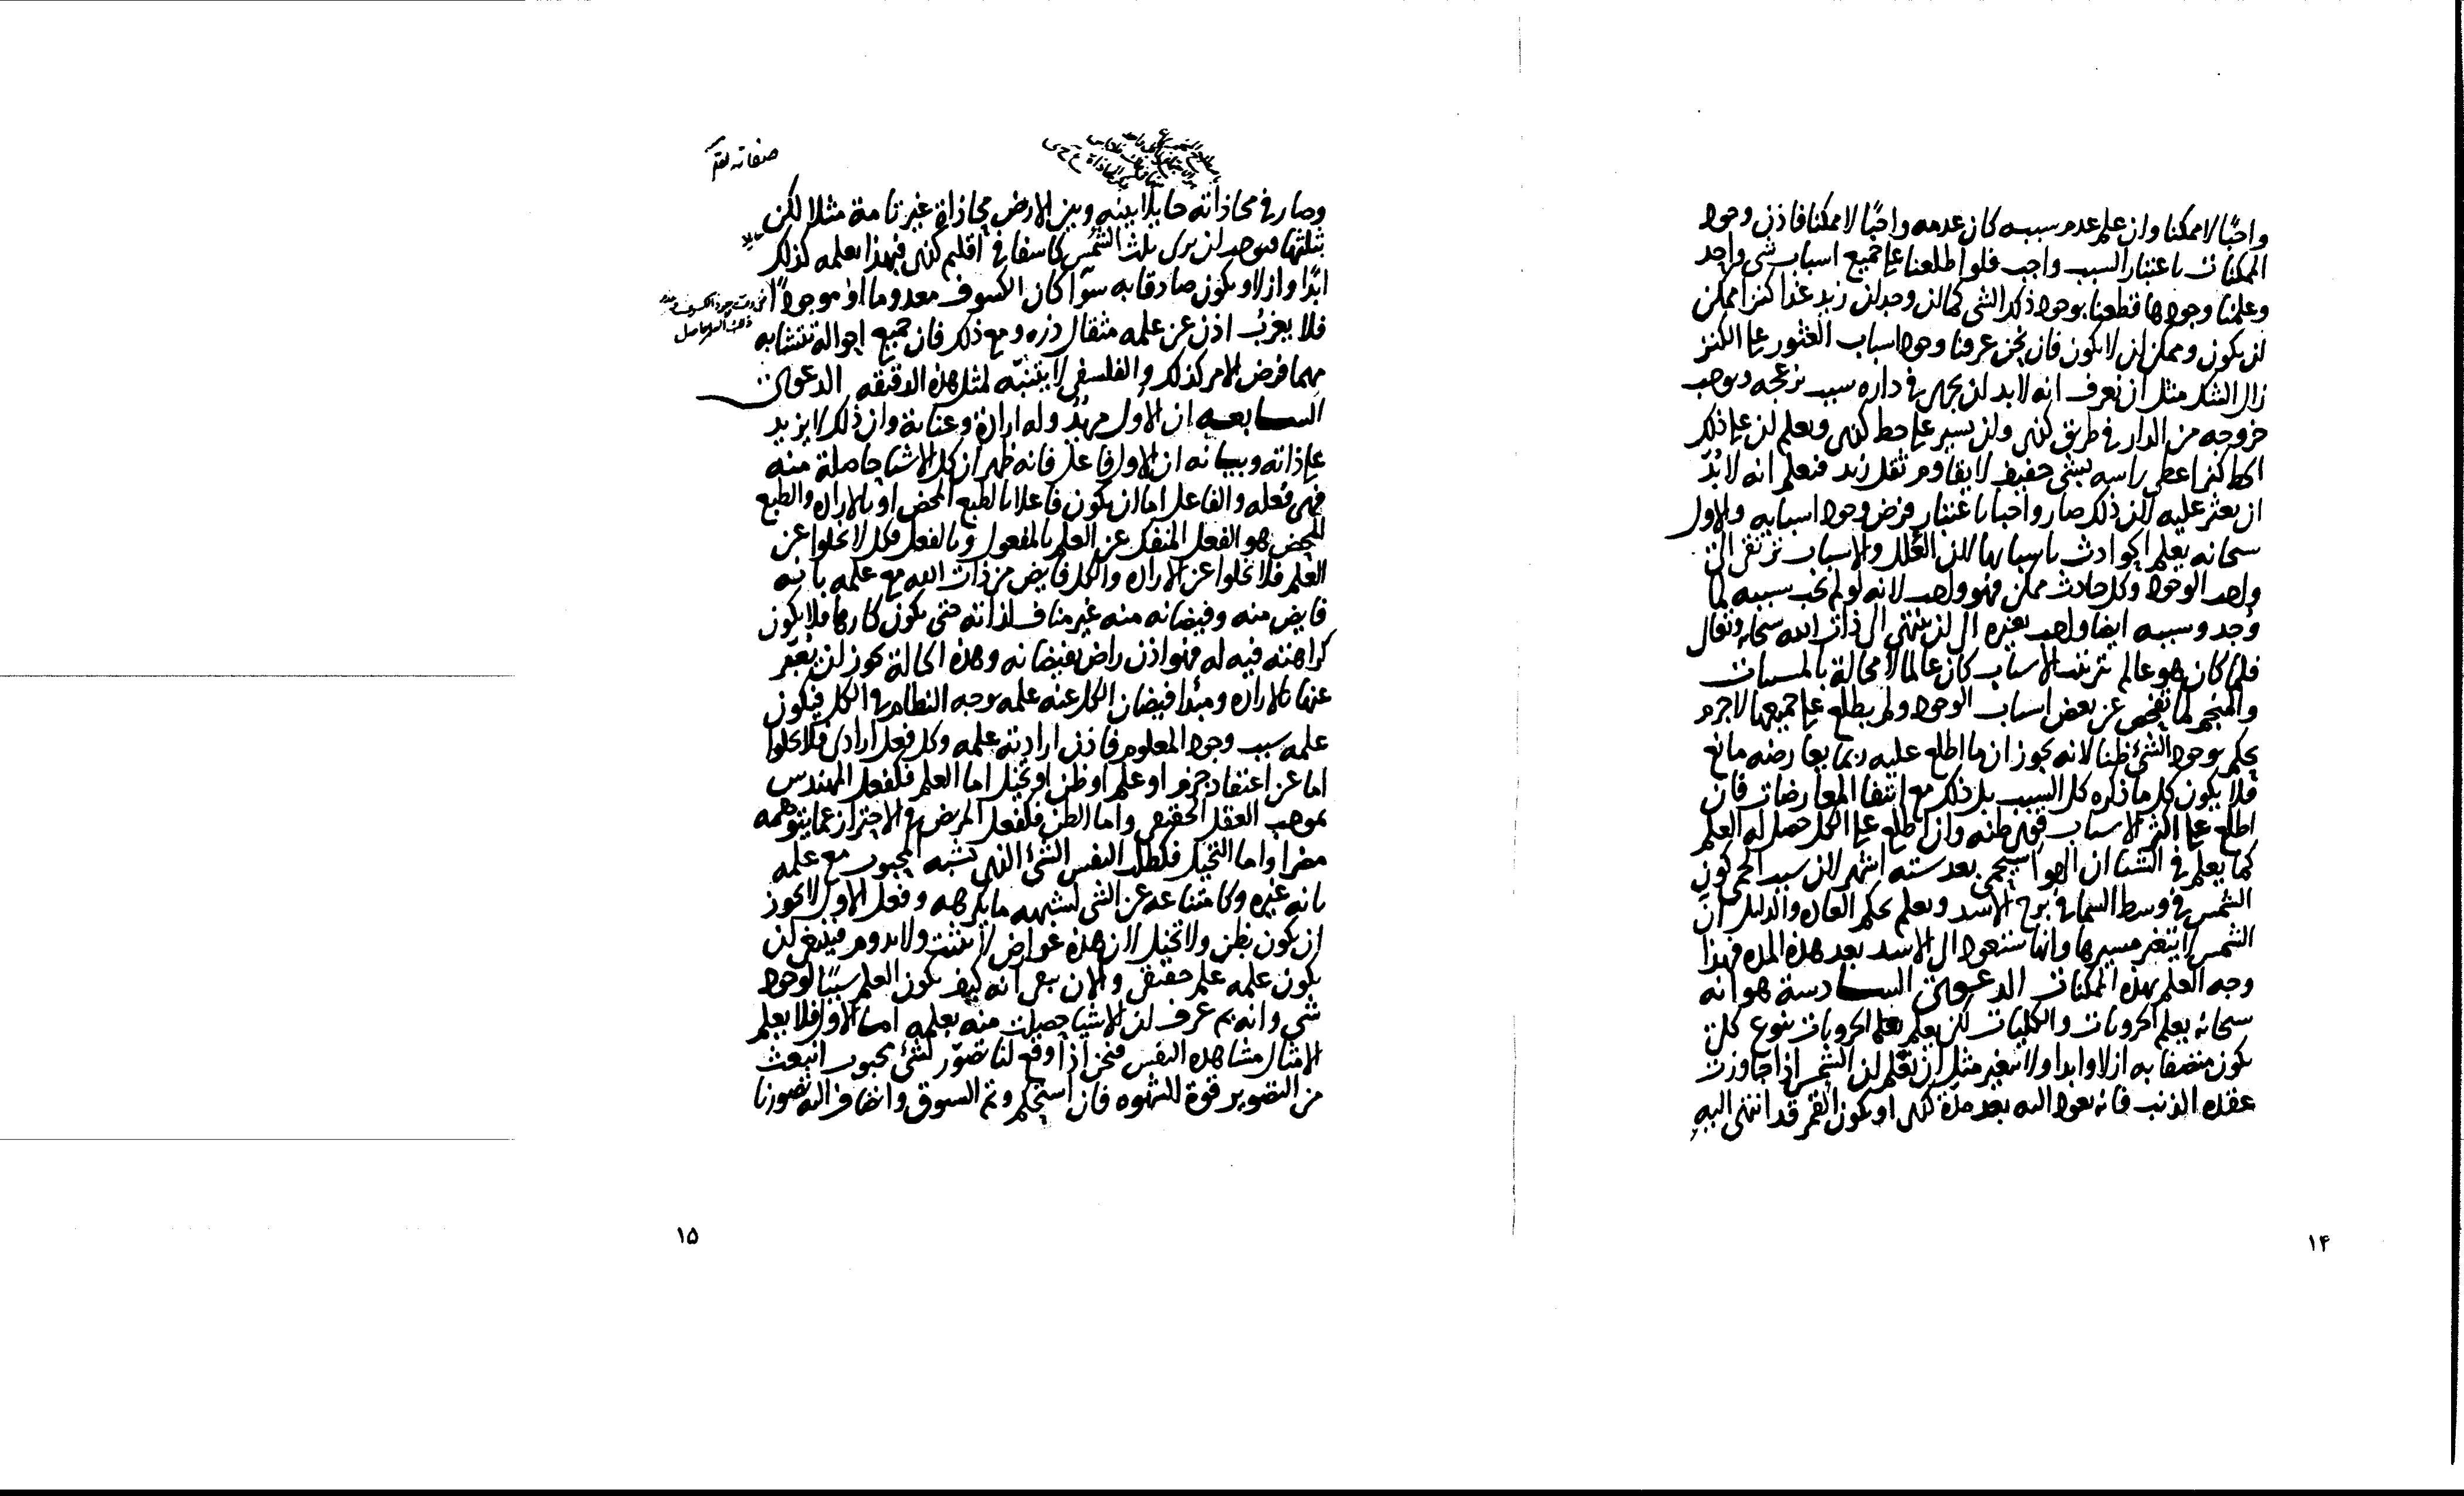 واجبًا لا ممكنا وان علم عدم سببه كان عدمه واجبًا لا ممكنا فاذن وجود
الممكنات باعتبار السبب واجب فلو اطلعنا على جميع اسباب شى واحد
وعلمنا وجودها قطعنا بوجود ذلك الشى كما ان وجدان زيد غدا كنزا ممكن
ان يكون وممكن ان لا يكون فان نحن عرفنا وجود اسباب العثور على الكنز
زال الشك مثل ان نعرف انه لابد ان يجرى فى داره سبب يزعجه ويوجب
خروجه من الدار فى طريق كذى وان يسير على خط كذى ونعلم ان على ذلك
الخط كنزا غطى راسه بشى خفيف لا يقاوم ثقل زيد فنعلم انه لا بُدّ
ان يعثر عليه لان ذلك صار واجبا باعتبار فرض وجود اسبابه والاول
سبحانه يعلم الحوادث باسبابها لان العلل والاسباب ترتقى الى
واجب الوجود وكل حادث ممكن فهو واجب لانه لو لم يجب سببه لما
وُجد وسببه ايضا واجب بغيره الى ان ينتهى الى ذات الله سبحانه وتعالى
فلما كان هو عالم بترتيب الاسباب كان عالما لا محالة بالمسببات
والمنجم لما تفحص عن بعض اسباب الوجود ولم يطلع على جميعها لاجرم
يحكم بوجود الشئ ظنا لانه يجوز ان ما اطلع عليه ربما يعارضه مانع
فلا يكون كل ما ذكره كل السبب بل ذلك مع انتفا المعارضات فان
اطلع على اكثر الاسباب قوى ظنه وان اطلع على الكل حصل له العلم
كما يعلم فى الشتا ان الهوا سيحمى بعد ستة اشهر لان سبب الحمى كون
الشمس فى وسط السما فى برج الاسد ونعلم بحكم العاده والدليل ان
الشمس لا يتغير مسيرها وانها ستعود الى الاسد بعد هذه المده فهذا
وجه العلم بهذه الممكنات الدعوى السادسة هو انه
سبحانه يعلم الجزويات والكليات لكن يعلم الجزويات بنوع كلى
يكون متصفا به ازلا وابدا ولا يتغير مثل ان تعلم ان الشمس اذا جاوزت
عقده الذنب فانه يعود اليه بعد مدة كذى او يكون القمر قد انتهى اليه
۱۴
وصار فى محاذاته حايلا بينه وبين الارض محاذاة غير تامة مثلا لكن
بثلثها فيوجب ان يرى ثلث الشمس كاسفا فى اقليم كذى فهذا يعلمه كذلك
ابدًا وازلا ويكون صادقا به سوّا كان الكسوف معدوما او موجودًا
فلا يعزبُ اذن عن علمه مثقال ذره ومع ذلك فان جميع احواله تتشابه
مهما فرض الامر كذلك والفلسفى لا يتنبّه لمثل هذه الدقيقه الدعوى
السابعه ان الاول مريدٌ وله ارادة وعناية وان ذلك لا يزيد
على ذاته وبيانه ان الاول فاعل فانه ظهر ان كل الاشيا حاصلة منه
فهى فعله والفاعل اما ان يكون فاعلا بالطبع المحض او بالاراده والطبع
المحض هو الفعل المنفك عن العلم بالمفعول وبالفعل وكل لا يخلوا عن
العلم فلا يخلوا عن الاراده والكل فايض من ذات الله مع علمه بانه
فايض منه وفيضانه منه غير مناف لذاته حتى يكون كارها فلا يكون
كراهته فيه له فهو اذن راض بفيضانه وهذه الحالة يجوز ان يعبّر
عنها بالاراده ومبدا فيضان الكل عنه علمه بوجه النظام فى الكل فيكون
علمه سبب وجود المعلوم فاذن ارادته علمه وكل فعل ارادى فلا يخلوا
اما عن اعتقاد جزم او علم او ظن او تخيل اما العلم فكفعل المهندس
بموجب العقل الحقيقى واما الظن فكفعل المريض فى الاحتراز عما يتوهمه
مضرا واما التخيل فكطلب النفس الشئ الذى تشبه المحبوب مع علمه
بانه غيره وكامتناعه عن الشى لشبهه ما يكرهه وفعل الاول لا يجوز
ان يكون بظن ولا تخيل لان هذه عوارض لا تثبت ولا تدوم فينبغى ان
يكون علمه علم حقيقى والان بقى انه كيف يكون العلم سببًا لوجود
شى وانه بم عرف ان الاشيا حصلت منه بعلمه اما الاول فلا يعلم
الا بمثال مشاهده النفس فنحن اذا وقع لنا تصوّر لشئ محبوب انبعث
من التصوير قوة الشهوه فان استحكم وتم الشوق وانضاف اليه تصورنا
۱۵